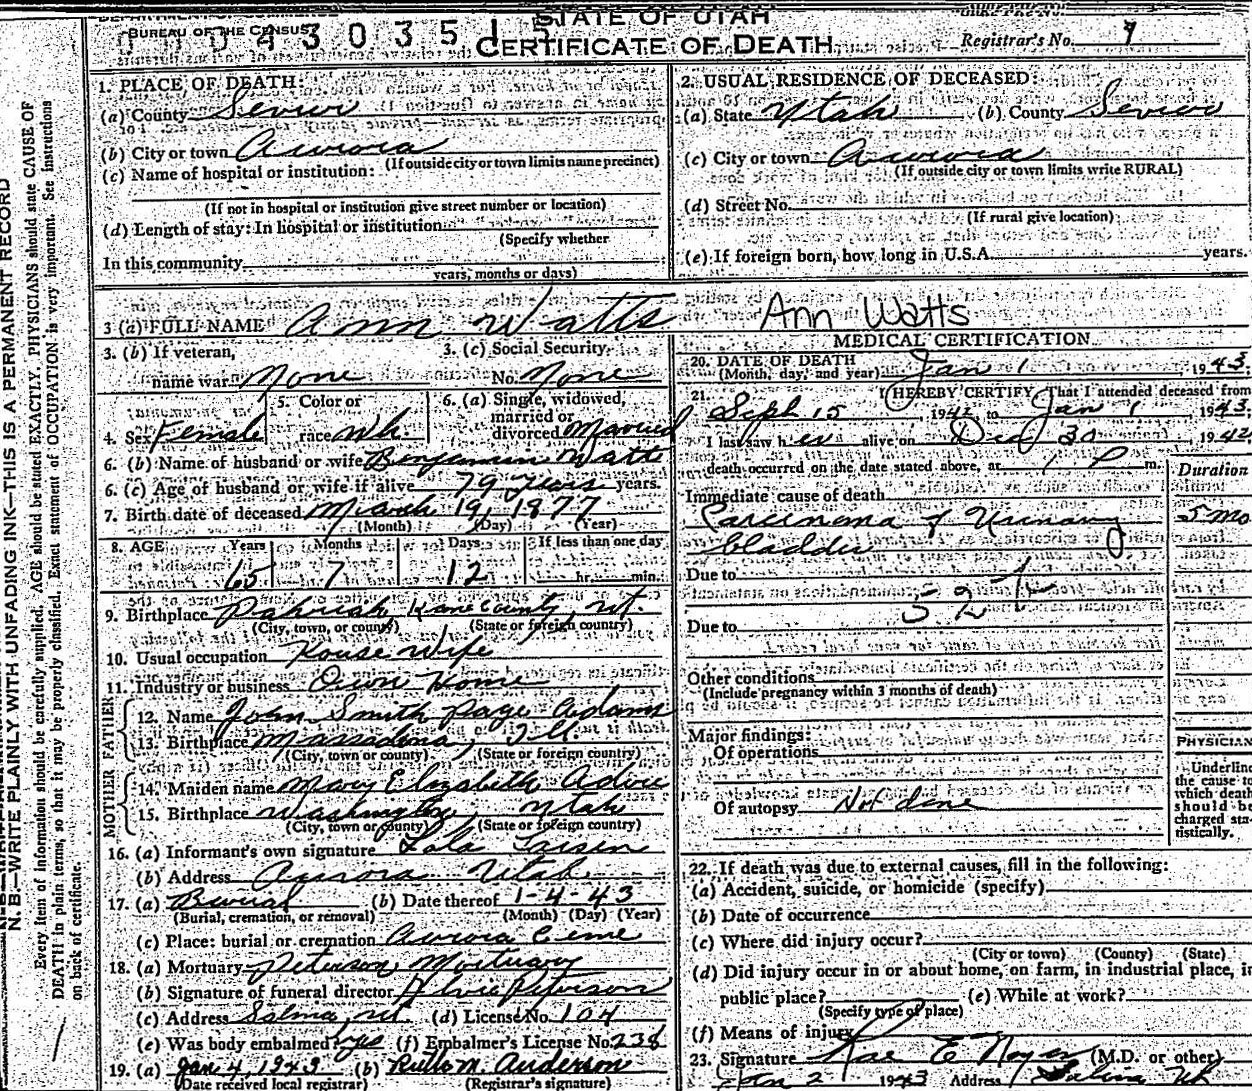 STATE OF UTAH
BUREAU OF THE CENSUS
043035
CERTIFICATE OF DEATH
Registrar's No. 9
1. PLACE OF DEATH:
(a) County Sevier
(b) City or town Aurora
(If outside city or town limits name precinct)
(c) Name of hospital or institution:
(If not in hospital or institution give street number or location)
(d) Length of stay: In hospital or institution
(Specify whether
In this community
years, months or days)
2. USUAL RESIDENCE OF DECEASED:
(a) State Utah (b) County Sevier
(c) City or town Aurora
(If outside city or town limits write RURAL)
(d) Street No.
(If rural give location)
(e) If foreign born, how long in U.S.A. years.
3 (a) FULL NAME Ann Watts Ann Watts
3. (b) If veteran,
name war None
3. (c) Social Security
No. None
4. Sex Female
5. Color or
race Wh.
6. (a) Single, widowed,
married or
divorced Married
6. (b) Name of husband or wife Benjamin Watts
6. (c) Age of husband or wife if alive 79 years years.
7. Birth date of deceased March 19, 1877
(Month) (Day) (Year)
8. AGE Years Months Days If less than one day
65 7 12 hr. min.
9. Birthplace Pahreah, Kane County, Ut.
(City, town, or county) (State or foreign country)
10. Usual occupation House Wife
11. Industry or business Own Home
FATHER
12. Name John Smith Page Adams
13. Birthplace
(City, town or county) (State or foreign country)
MOTHER
14. Maiden name Mary Elizabeth
15. Birthplace Washington, Utah
(City, town or county) (State or foreign country)
16. (a) Informant's own signature Lola Larsen
(b) Address Aurora Utah
17. (a) Burial (b) Date thereof 1-4-43
(Burial, cremation, or removal) (Month) (Day) (Year)
(c) Place: burial or cremation Aurora Ceme
18. (a) Mortuary Peterson Mortuary
(b) Signature of funeral director Peterson
(c) Address Salina, Ut. (d) License No. 104
(e) Was body embalmed? yes (f) Embalmer's License No. 238
19. (a) Jan. 4, 1943 (b) Ruth M. Anderson
(Date received local registrar) (Registrar's signature)
MEDICAL CERTIFICATION
20. DATE OF DEATH
(Month, day, and year) Jan 1 1943.
21. I HEREBY CERTIFY That I attended deceased from
Sept 15 1942 to Jan 1 1943.
I last saw her alive on Dec 30, 1942
death occurred on the date stated above, at 1 P m.
Duration
Immediate cause of death
Carcinoma of Urinary 5 mo
bladder
Due to
52
Due to
Other conditions
(Include pregnancy within 3 months of death)
Major findings:
Of operations
Of autopsy Not done
PHYSICIAN
Underline
the cause to
which death
should be
charged sta-
tistically.
22. If death was due to external causes, fill in the following:
(a) Accident, suicide, or homicide (specify)
(b) Date of occurrence
(c) Where did injury occur?
(City or town) (County) (State)
(d) Did injury occur in or about home, on farm, in industrial place, in
public place? (e) While at work?
(Specify type of place)
(f) Means of injury
23. Signature Rae E Noyes (M.D. or other)
Jan 2 1943 Address Salina Ut
N. B.—WRITE PLAINLY WITH UNFADING INK—THIS IS A PERMANENT RECORD
Every item of information should be carefully supplied. AGE should be stated EXACTLY. PHYSICIANS should state CAUSE OF
DEATH in plain terms, so that it may be properly classified. Exact statement of OCCUPATION is very important. See instructions
on back of certificate.